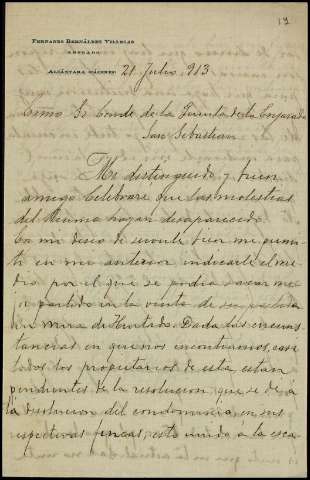 19
FERNANDO BERNÁLDEZ VILLEGAS
ABOGADO
ALCÁNTARA (CÁCERES) 21 Julio 913
Exmo Sr Conde de la Fuente de la
San Sebastian
Mi distinguido y buen
amigo: Celebraré que las molestias
del Reuma hayan desaparecido.
En mi deseo de servirle bien me permi-
tí en mi anterior indicarle el me-
dio por el que se podía sacar me-
jor partido en la venta de su
en Mira de Hurtado. Dada las circuns-
tancias en que nos encontramos, casi
todos los propietarios de esta están
pendientes de la resolucion que se dé á
la disolucion del condominio en sus
respectivas fincas; esto unido á la esca-